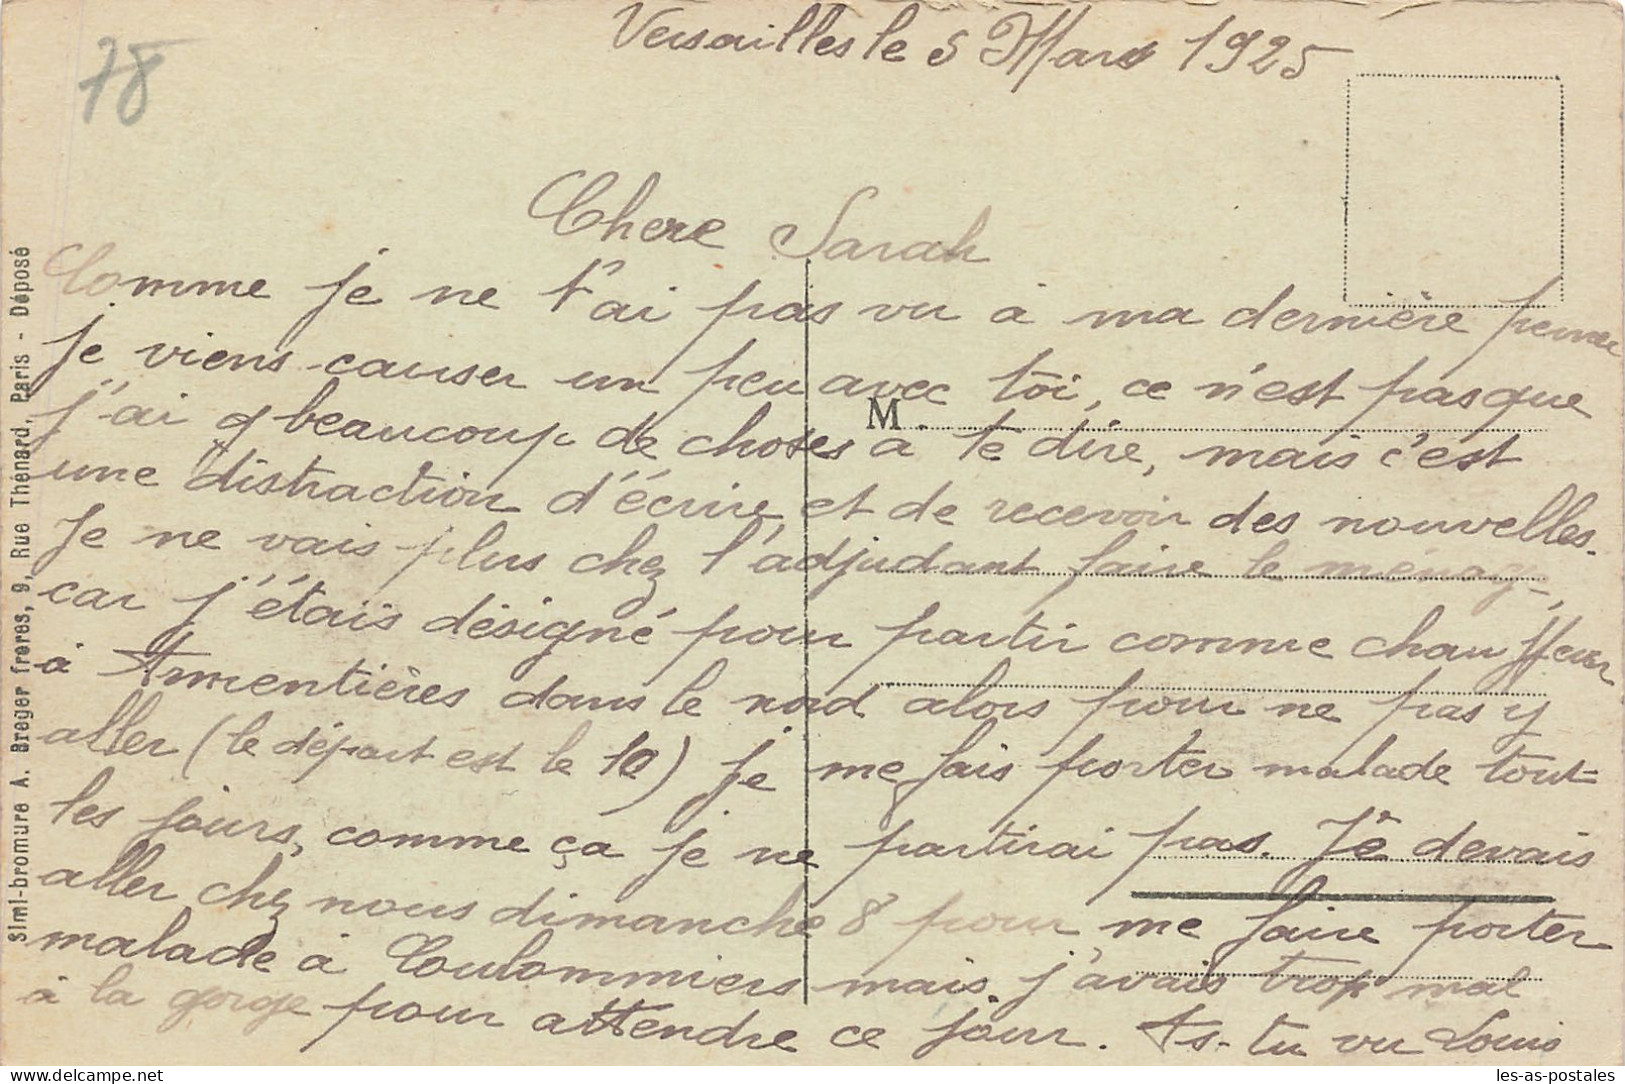 Versailles le 5 Mars 1925
78
Chere Sarah
Comme je ne t'ai pas vu à ma dernière perme
je viens causer un peu avec toi, ce n'est pas que
j'ai beaucoup de choses à te dire, mais c'est
M.
une distraction d'écrire et de recevoir des nouvelles.
Je ne vais plus chez l'adjudant faire le ménage,
car j'étais désigné pour partir comme chauffeur
à Armentières dans le nord alors pour ne pas y
aller (le départ est le 10) je me fais porter malade tout
les jours, comme ça je ne partirai pas. Je devais
aller chez nous dimanche 8 pour me faire porter
malade à Coulommiers mais j'avais trop mal
à la gorge pour attendre ce jour. As-tu vu Louis
Simi-bromure A. Breger freres, 9, Rue Thénard, Paris - Déposé
les-as-postales